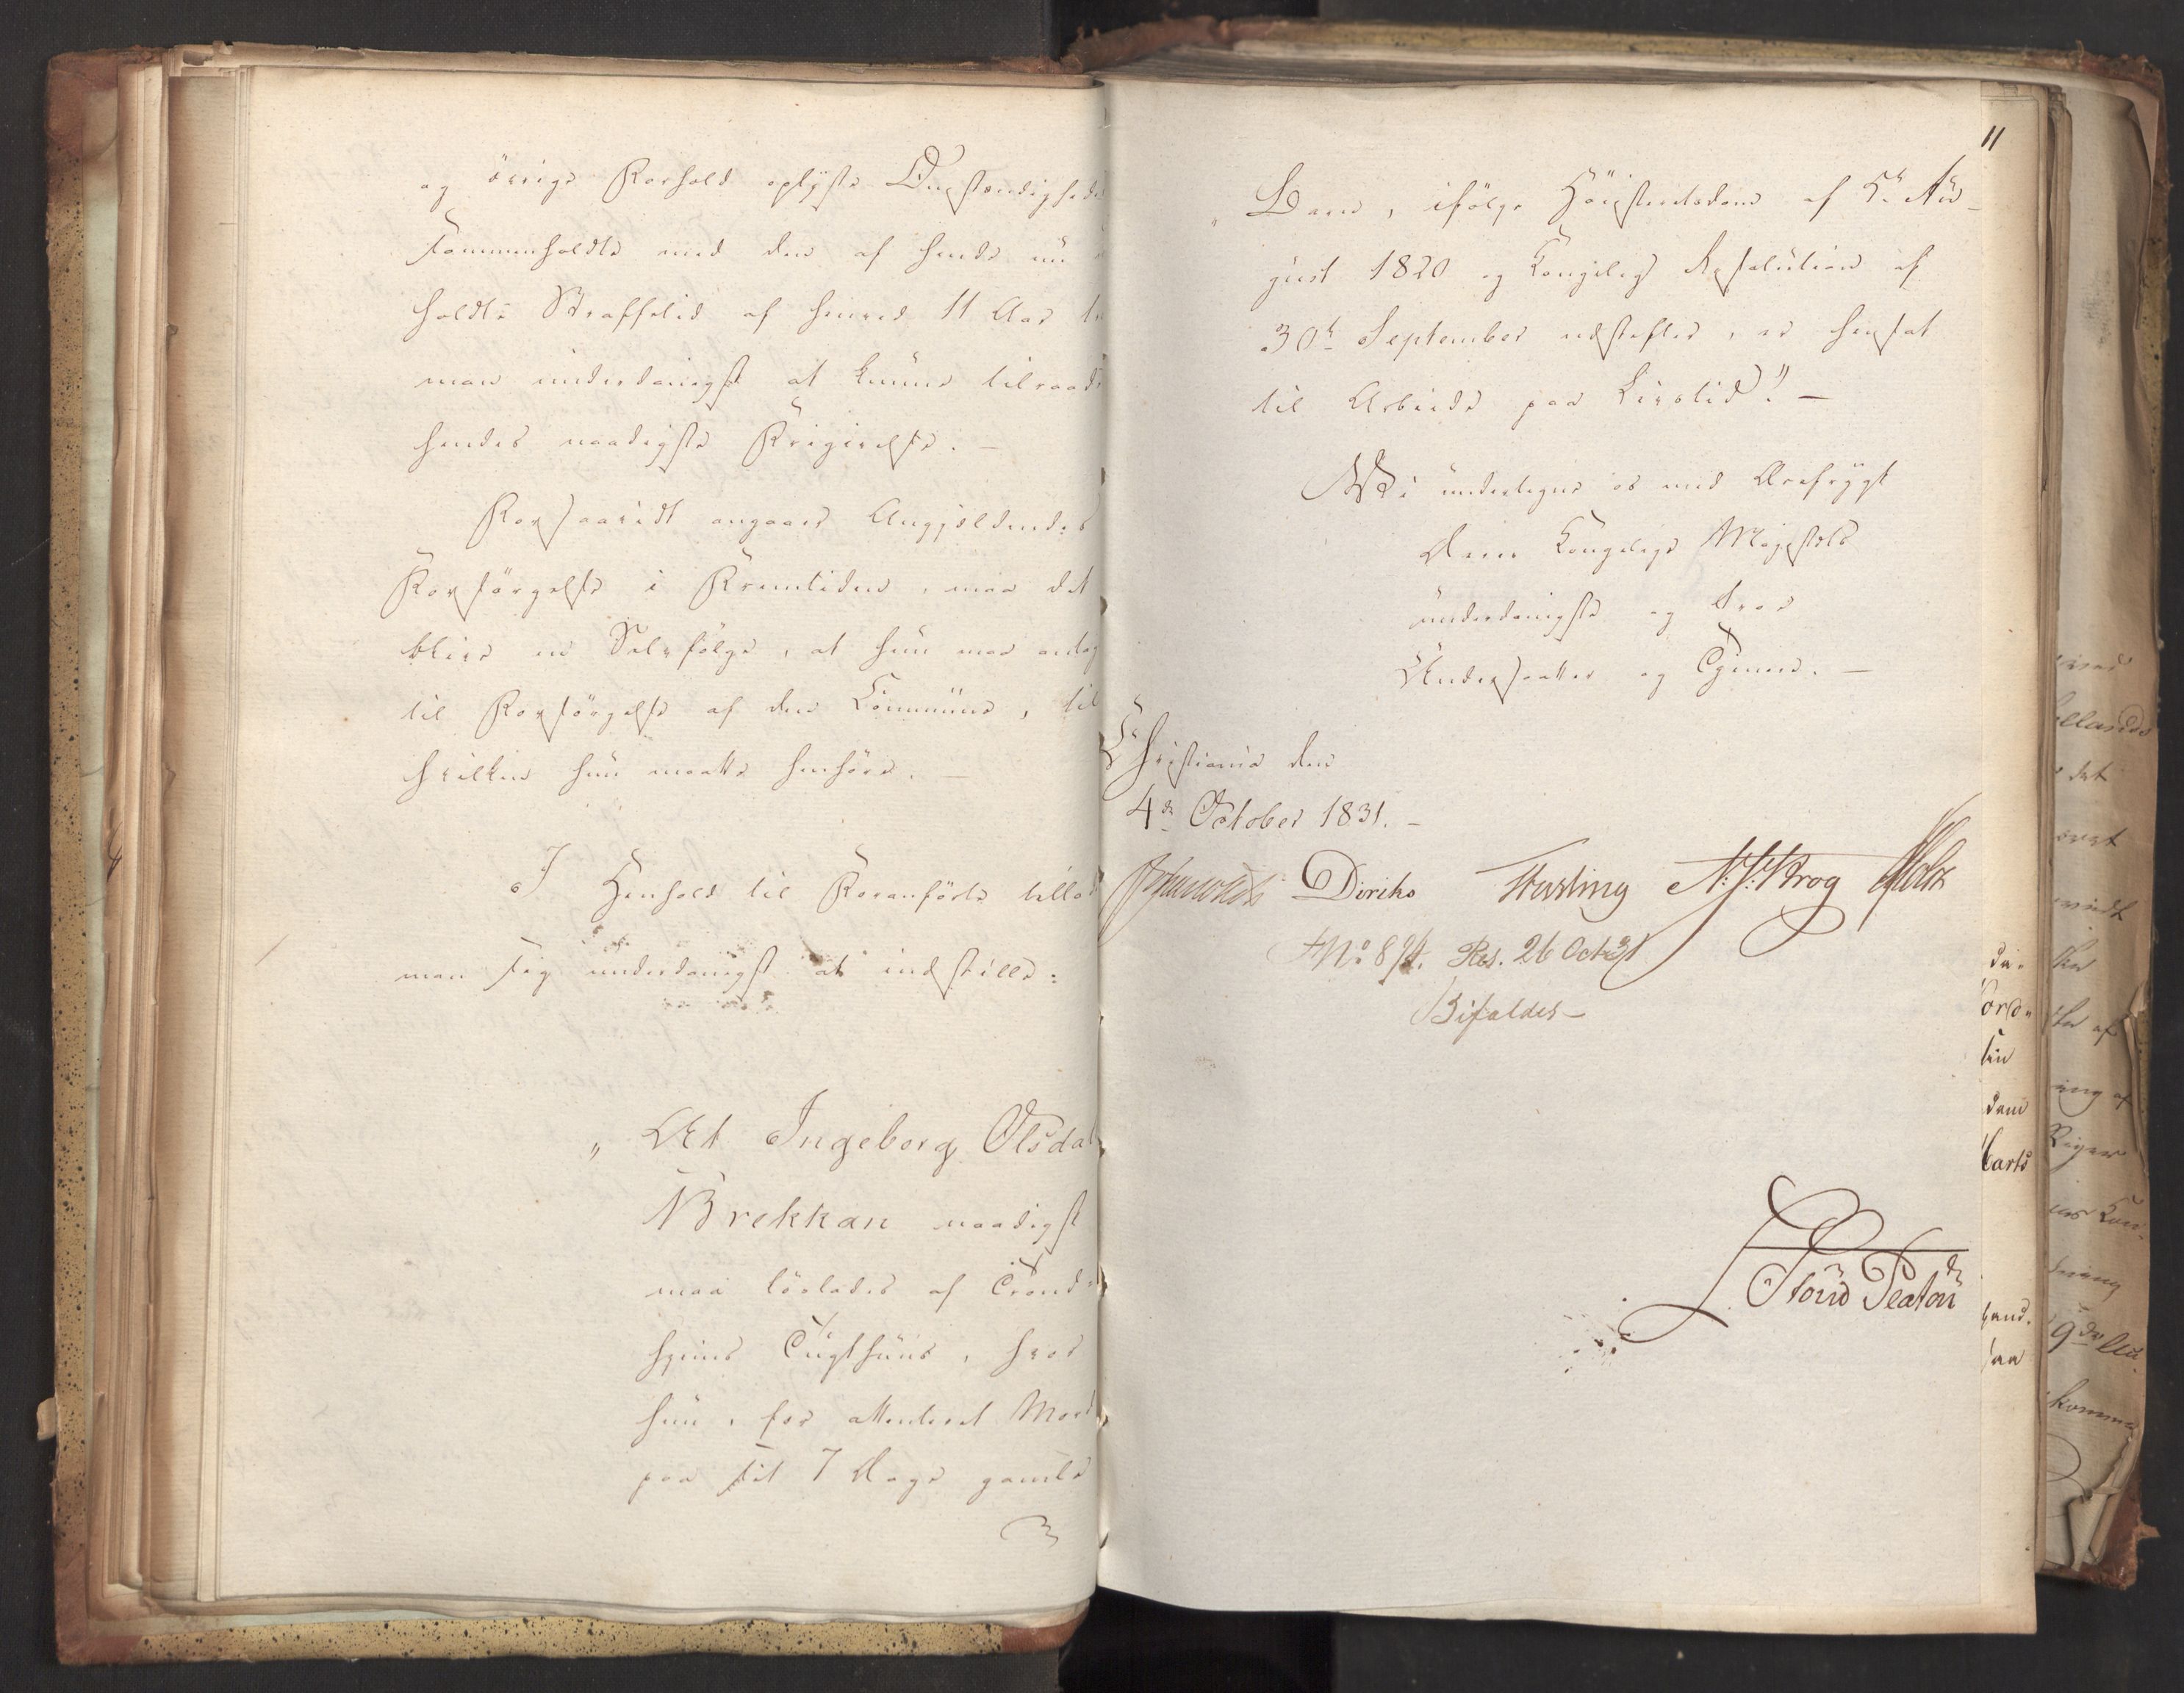 og övrige Forhold oplyste Omstændigheder
sammenholdte med den af hende ud-
holdte Straffetid af henved 11 Aar tr
man underdanigst at kunne tilraade
hendes naadigste Frigivelse. —
Forsaavidt angaaer Angjeldendes
Forsörgelse i Fremtiden, maa det
blive en Selvfölge, at hun maa antag
til Forsörgelse af den Commune, til
hvilken hun maatte henhöre. —
I Henhold til Foranförte tillad
man sig underdanigst at indstille:
„ At Ingeborg Olsdat
Brekkan naadigst
maa löslades af Trond-
hjems Tugthuus, hvor
hun, for attenteret Mord
paa sit 7 Dage gamle
11
„ Barn, ifölge Höiesteretsdom af 5te Au-
gust 1820 og Kongelig Resolution af
30te September næstefter, er hensat
til Arbeide paa Livstid". —
Vi undertegne os med Ærefrygt
Deres Kongelige Majestæts
underdanigste og troe
Undersaatter og Tjenere. —
Christiania den
4de October 1831. —
Diriks Fasting N: J: Krog Holst
No 874. Res. 26 Oct 31
Bifaldes —
da.
ord.
sin
dem
Marts
hand.
saa
det
ing af
Kon
9de
komme